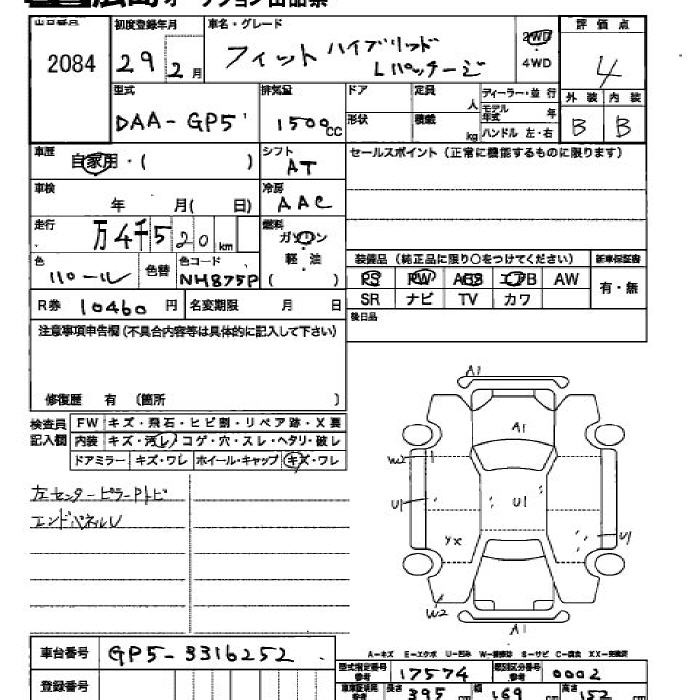 広島オークション出品票
出品番号 2084
初度登録年月 29 2月
車名・グレード フィット ハイブリッド Lパッケージ
2WD
4WD
評価点 4
型式 DAA-GP5
排気量 1500cc
ドア
形状
定員 人
積載 kg
ディーラー・並行
モデル年式 年
ハンドル 左・右
外装 内装
B B
車歴 自家用・( )
シフト AT
セールスポイント(正常に機能するものに限ります)
車検 年 月( 日)
冷房 AAC
走行 万4千520km
燃料 ガソリン
軽・油
( )
色 パール
色替
色コード NH875P
装備品(純正品に限り○をつけてください)
新車保証書
PS PW ABS エアB AW
SR ナビ TV カワ
有・無
R券 10460円
名変期限 月 日
後日品
注意事項申告欄(不具合内容等は具体的に記入して下さい)
修復歴 有 (箇所 )
検査員記入欄
FW キズ・飛石・ヒビ割・リペア跡・X要
内装 キズ・汚レ・コゲ・穴・スレ・ヘタリ・破レ
ドアミラー キズ・ワレ ホイール・キャップ キズ・ワレ
左センターピラーPトビ
エンドパネルU
A1
A1
W2
U1
U1
U1
YX
W2
A1
A-キズ E-エクボ U-凹み W-補修波 S-サビ C-腐食 XX-交換済
車台番号 GP5-3316252
登録番号
型式指定番号 参考 17574
類別区分番号 参考 0002
車車証明用 参考 長さ 395cm 幅 169cm 高さ 152cm